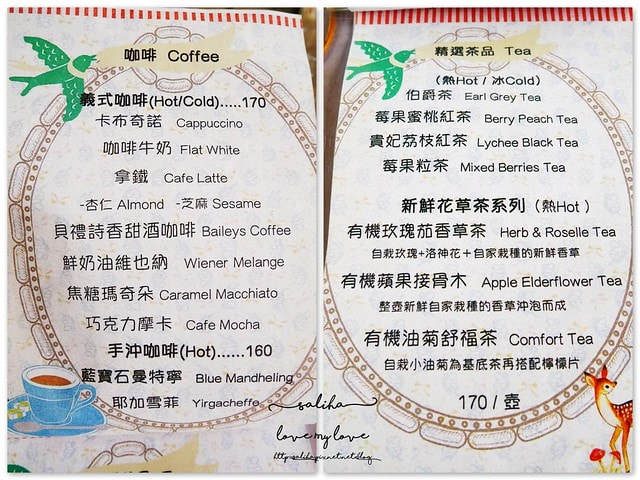 咖啡 Coffee
義式咖啡(Hot/Cold).....170
卡布奇諾 Cappuccino
咖啡牛奶 Flat White
拿鐵 Cafe Latte
-杏仁 Almond -芝麻 Sesame
貝禮詩香甜酒咖啡 Baileys Coffee
鮮奶油維也納 Wiener Melange
焦糖瑪奇朵 Caramel Macchiato
巧克力摩卡 Cafe Mocha
手沖咖啡(Hot)......160
藍寶石曼特寧 Blue Mandheling
耶加雪菲 Yirgacheffe
精選茶品 Tea
(熱Hot / 冰Cold)
伯爵茶 Earl Grey Tea
莓果蜜桃紅茶 Berry Peach Tea
貴妃荔枝紅茶 Lychee Black Tea
莓果粒茶 Mixed Berries Tea
新鮮花草茶系列 (熱Hot)
有機玫瑰茄香草茶 Herb & Roselle Tea
自栽玫瑰+洛神花+自家栽種的新鮮香草
有機蘋果接骨木 Apple Elderflower Tea
整壺新鮮自家栽種的香草沖泡而成
有機油菊舒福茶 Comfort Tea
自栽小油菊為基底茶再搭配檸檬片
170 / 壺
saliha
love my love